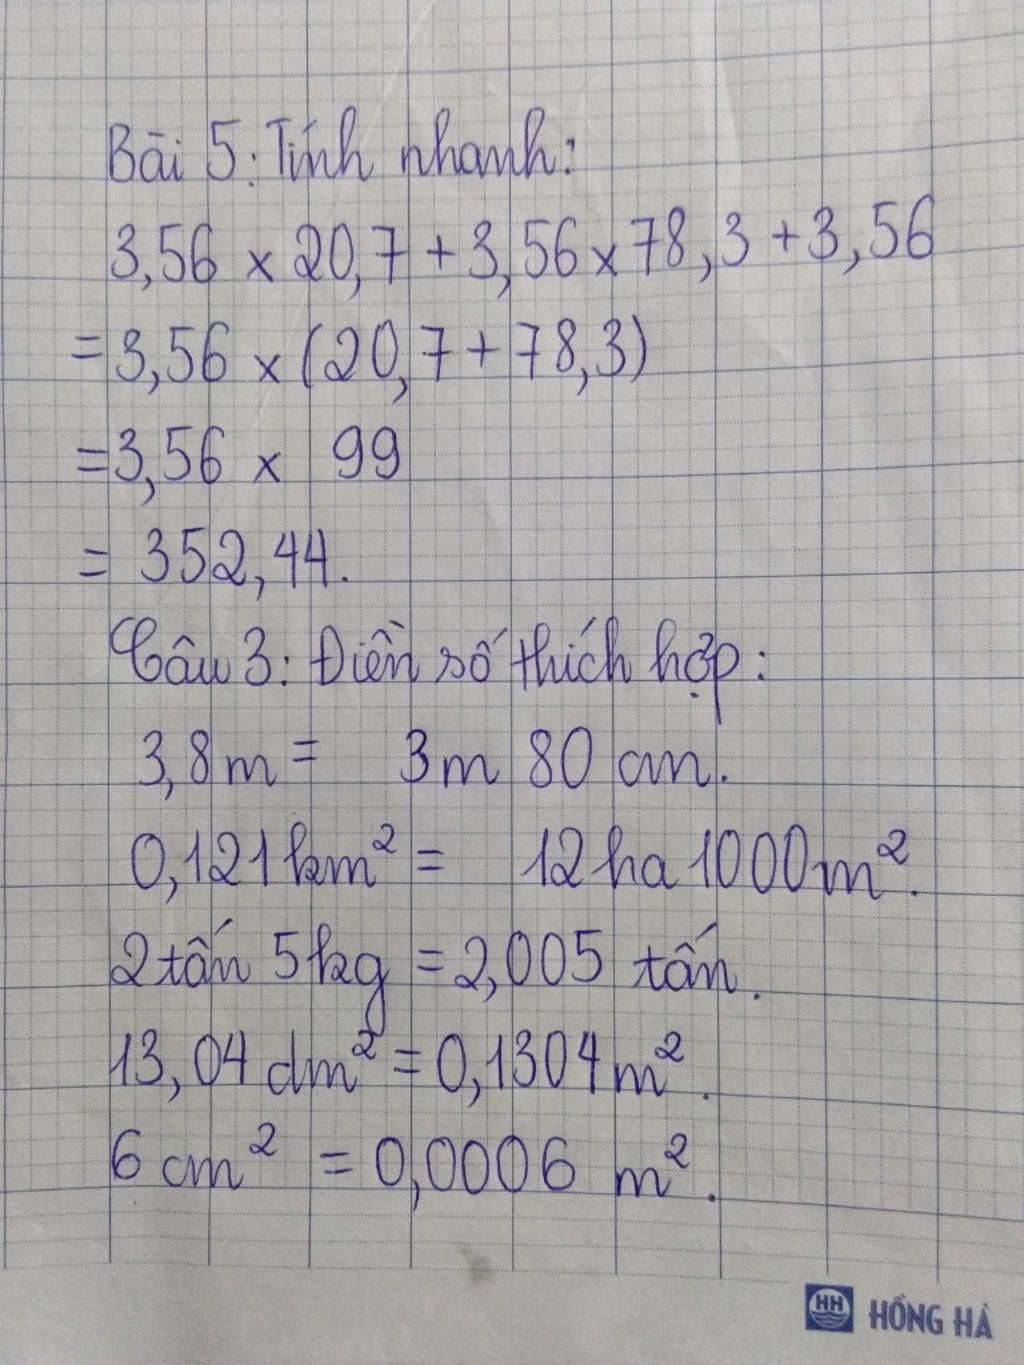 Bài 5: Tính nhanh:
3,56 x 20,7 + 3,56 x 78,3 + 3,56
= 3,56 x (20,7 + 78,3)
= 3,56 x 99
= 352,44.
Câu 3: Điền số thích hợp:
3,8 m = 3 m 80 cm.
0,121 km² = 12 ha 1000 m².
2 tấn 5 kg = 2,005 tấn.
13,04 dm² = 0,1304 m².
6 cm² = 0,0006 m².
HH HỒNG HÀ